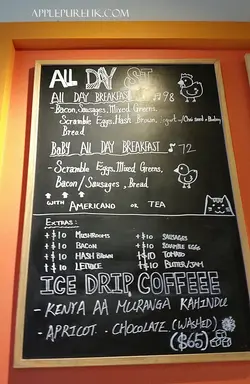 APPLEPUREHK.COM
ALL DAY ST
All DAY BREAKFAST ♪98
- Bacon, Sausages, Mixed Greens,
Scramble Eggs, Hash Brown, yogurt w/Chia seed +
Bread
BABY ALL DAY BREAKFAST ♪ 72
- Scramble Eggs, Mixed Greens,
Bacon / Sausages, Bread
↑ ↑ ↑ ↑
WITH AMERICANO OR TEA
EXTRAS:
+$10 MUSHROOMS +$10 SAUSAGES
+$10 BACON +$10 SCRAMBLE EGGS
+$10 HASH BROWN +$10 TOMATO
+$10 LETTUCE +$10 BUTTER/JAM
ICE DRIP COFFEEE
- KENYA AA MURANGA KAHINDU
- APRICOT · CHOCOLATE (WASHED)
($65)